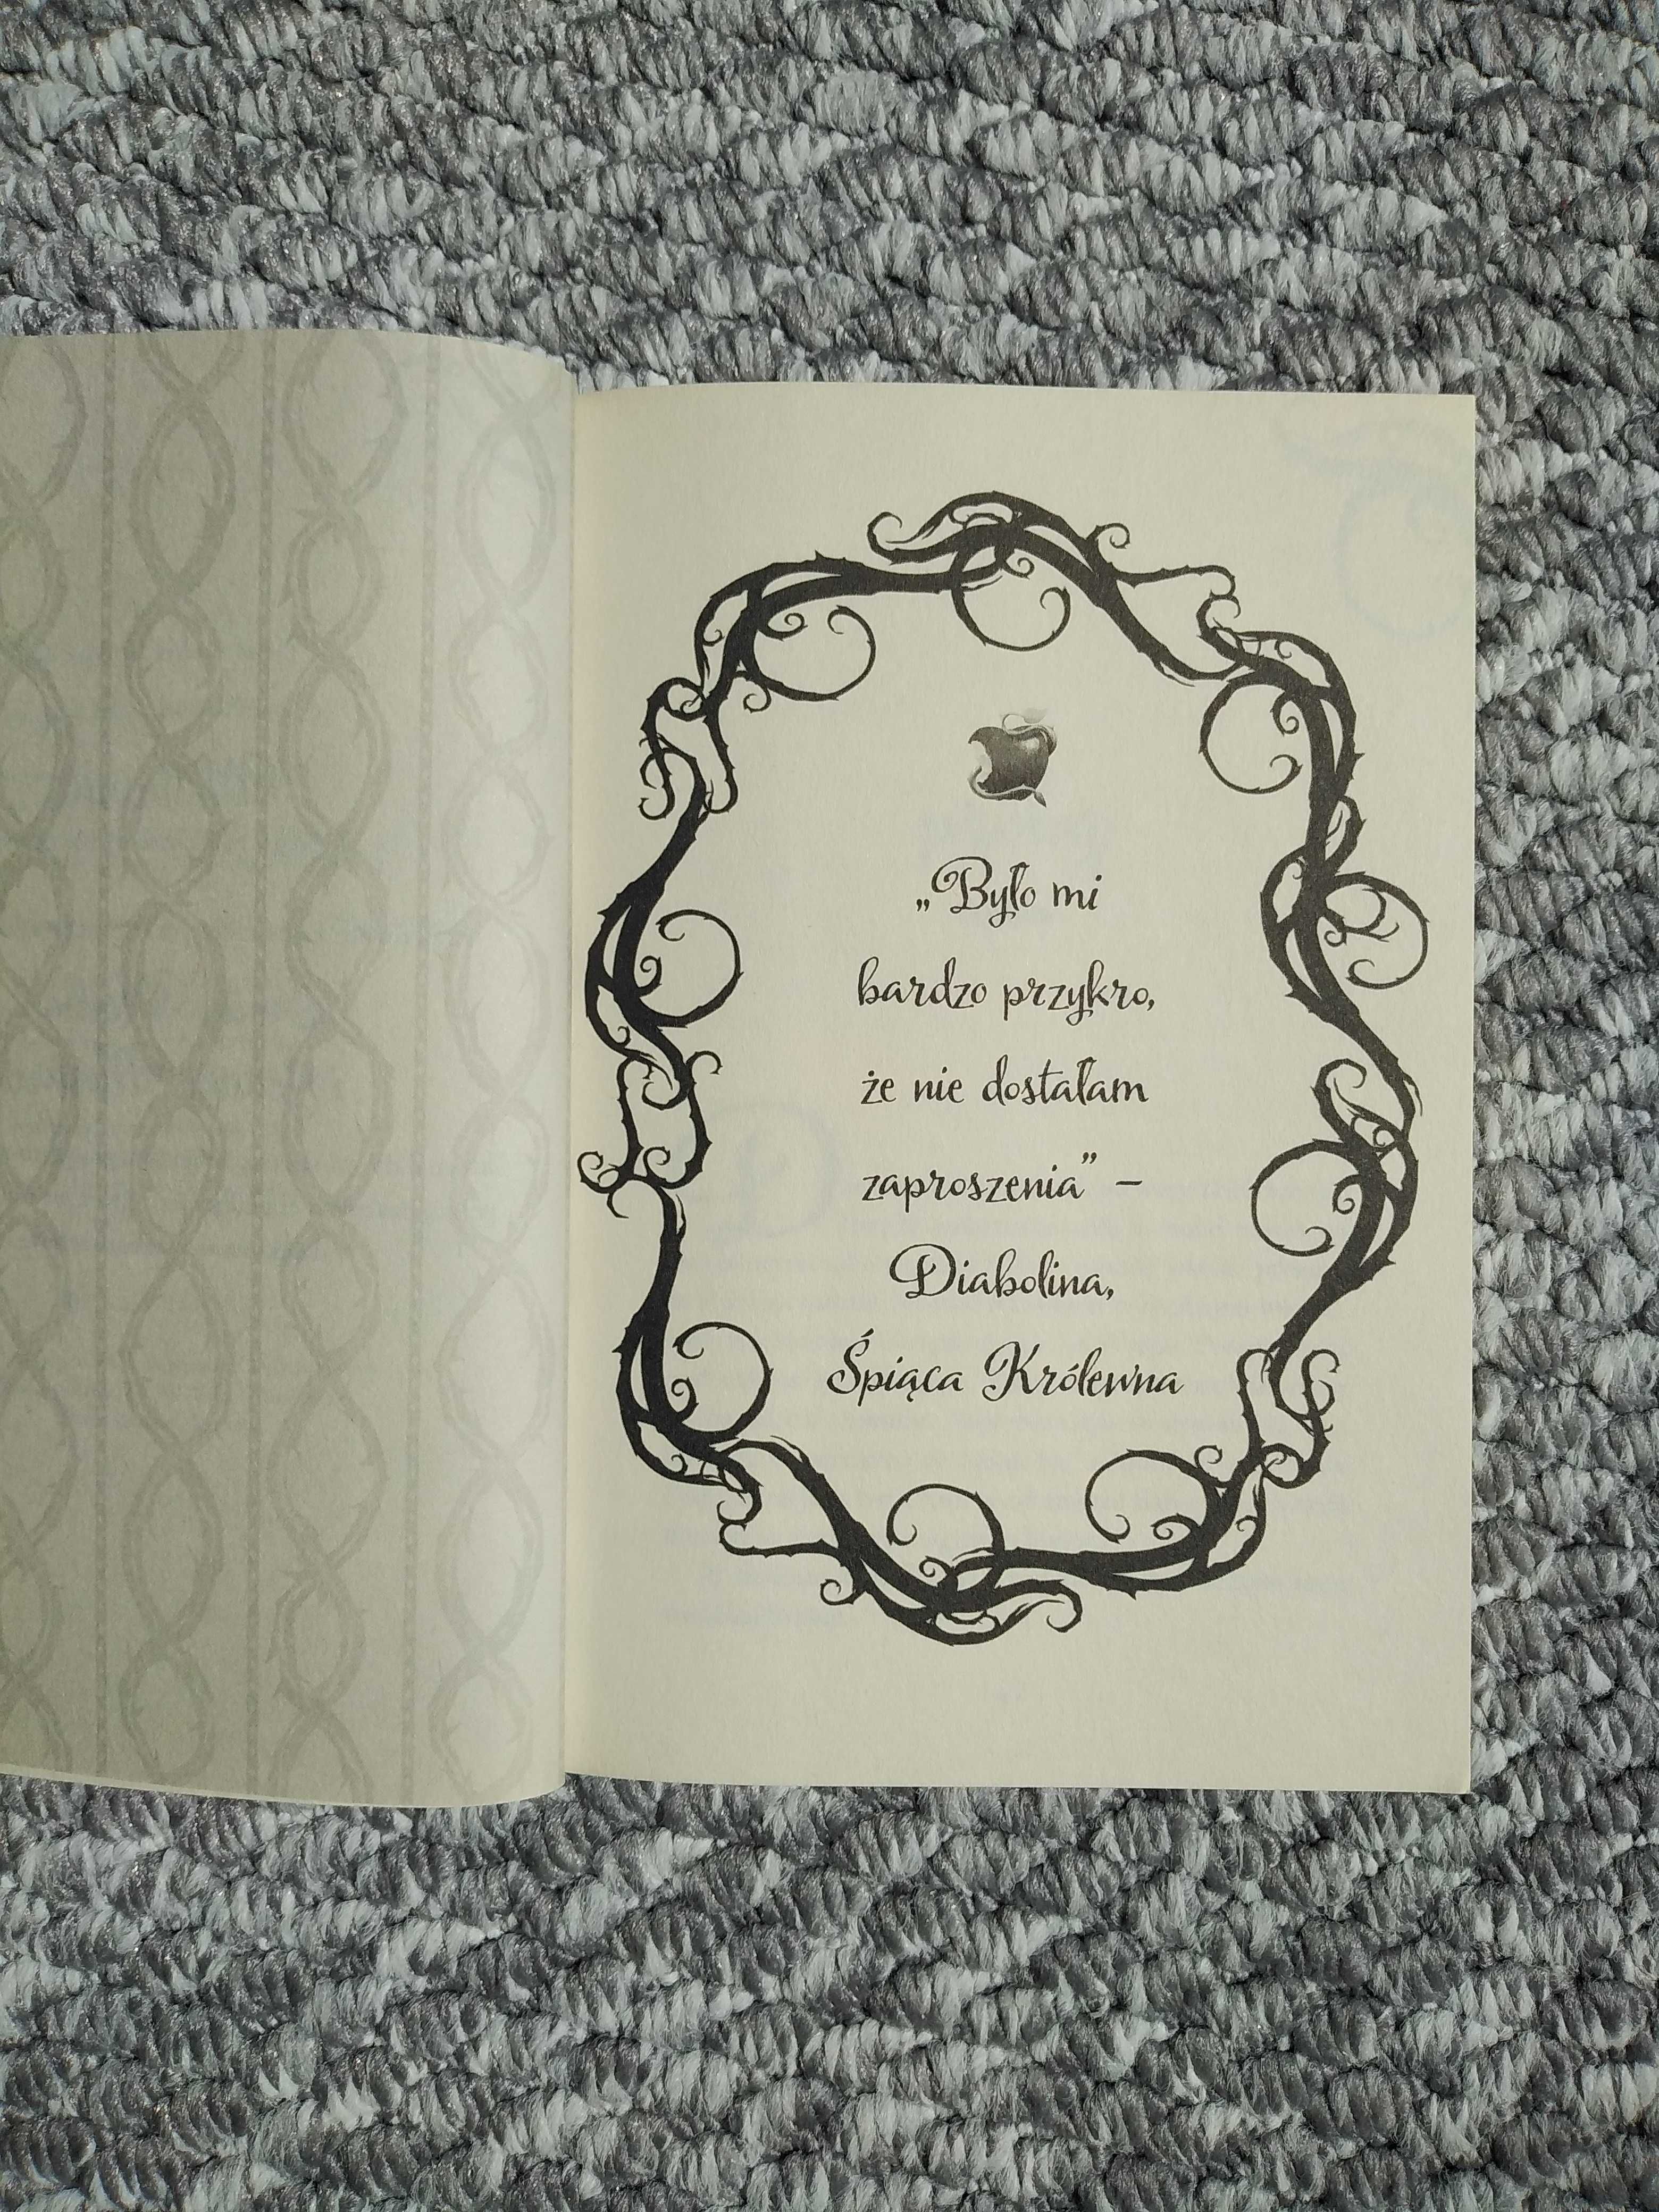 „Było mi
bardzo przykro,
że nie dostałam
zaproszenia” –
Diabolina,
Śpiąca Królewna